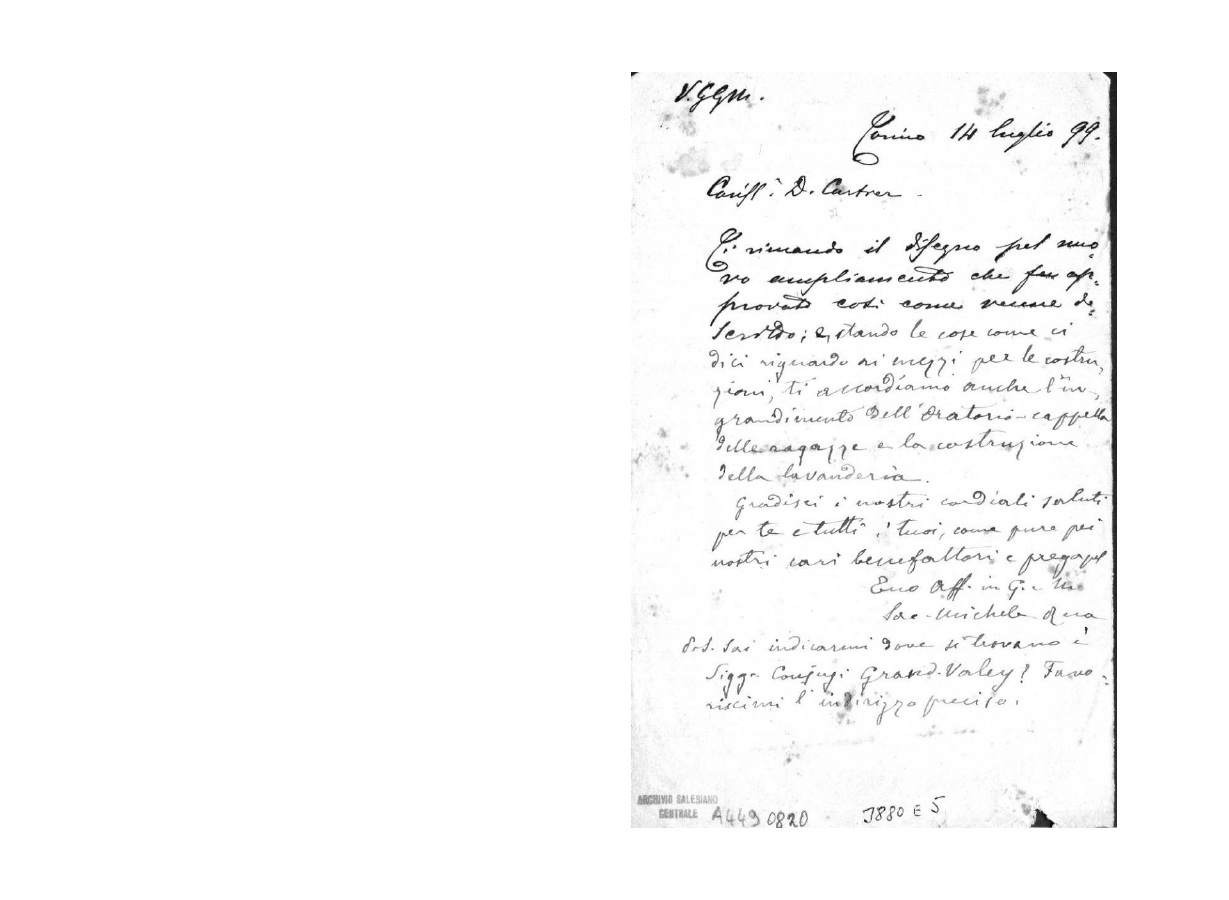 V.G.G.M.
Torino 14 luglio 99.
Cariss.º D. Cartier
Ti rimando il disegno pel nuo-
vo ampliamento che fu ap-
provato così come venne de-
scritto; e, stando le cose come ci
dici riguardo ai mezzi per le costru-
zioni, ti accordiamo anche l'in-
grandimento dell'Oratorio-cappella
delle ragazze e la costruzione
della lavanderia.
Gradisci i nostri cordiali saluti
per te e tutti i tuoi, come pure pei
nostri cari benefattori e prega pel
Tuo Aff. in G. e M.
Sac. Michele Rua
P.S. Sai indicarmi dove si trovano i
Sigg. Conjugi Grand-Valey? Favo-
riscimi l'indirizzo preciso.
ARCHIVIO SALESIANO
CENTRALE
A449 0820
3880 E 5